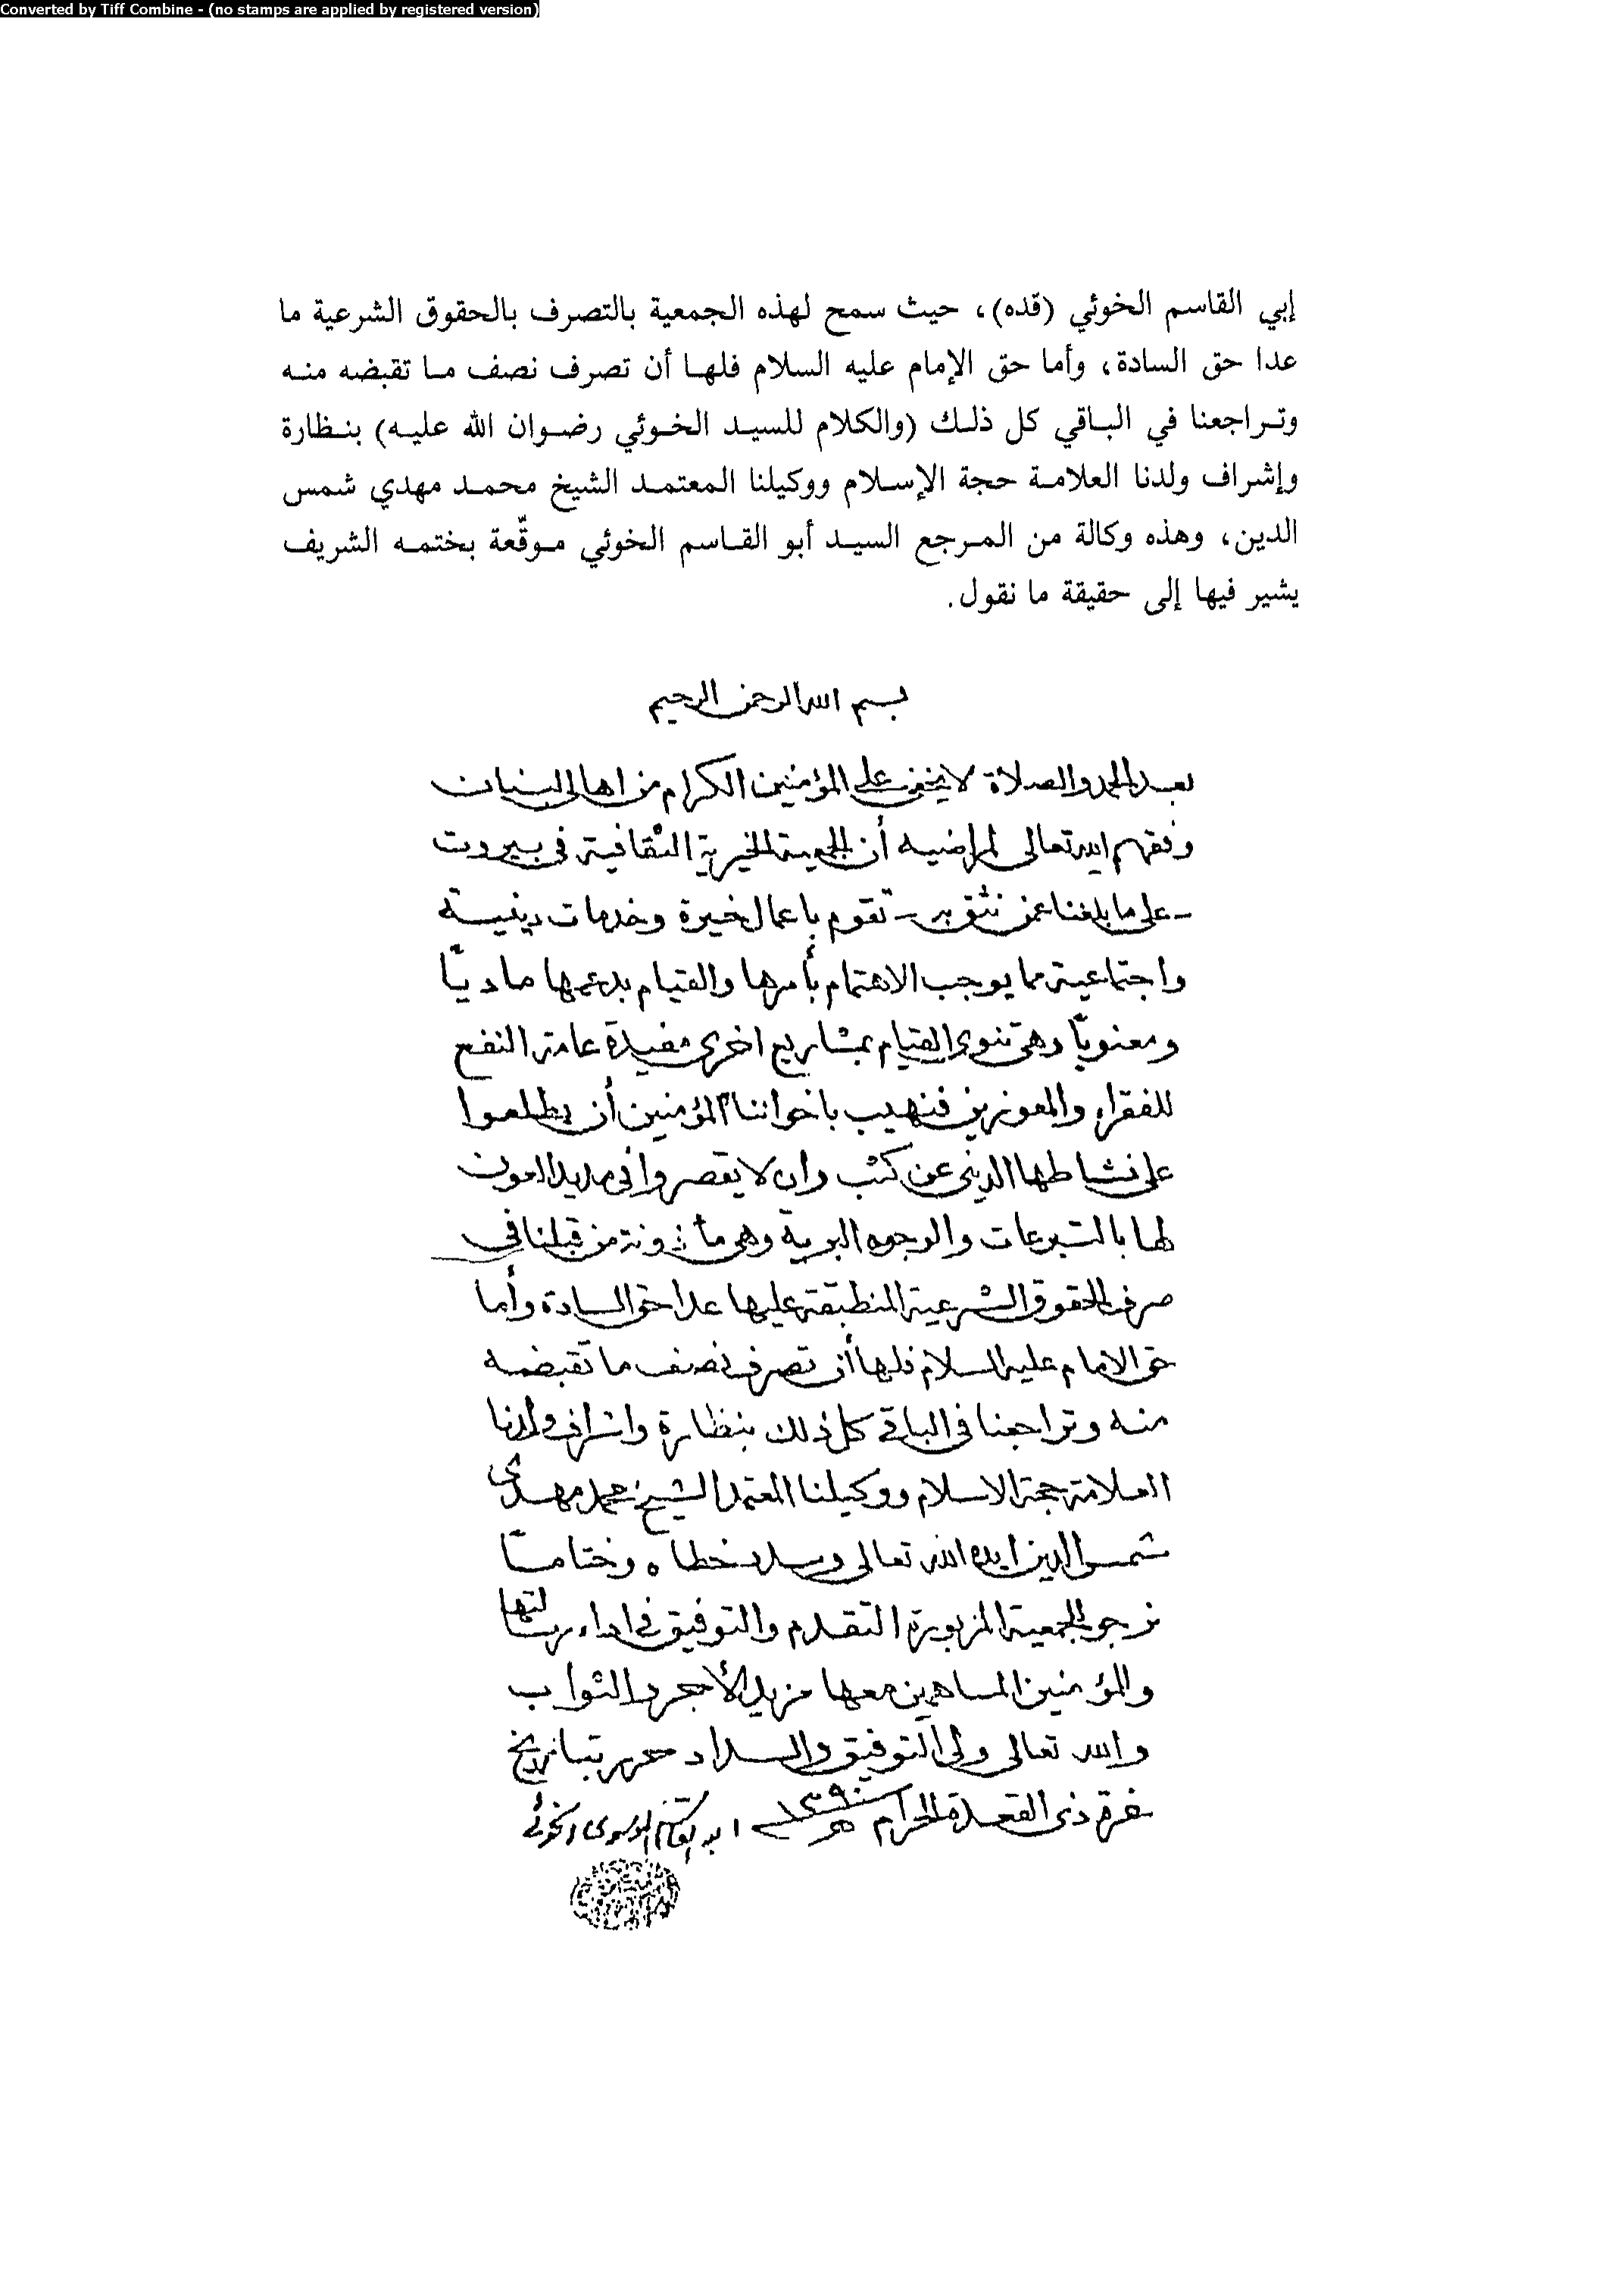 Converted by Tiff Combine - (no stamps are applied by registered version)
إبي القاسم الخوئي (قده)، حيث سمح لهذه الجمعية بالتصرف بالحقوق الشرعية ما
عدا حق السادة، وأما حق الإمام عليه السلام فلها أن تصرف نصف ما تقبضه منه
وتراجعنا في الباقي كل ذلك (والكلام للسيد الخوئي رضوان الله عليه) بنظارة
وإشراف ولدنا العلامة حجة الإسلام ووكيلنا المعتمد الشيخ محمد مهدي شمس
الدين، وهذه وكالة من المرجع السيد أبو القاسم الخوئي موقّعة بختمه الشريف
يشير فيها إلى حقيقة ما نقول.
بسم الله الرحمن الرحيم
بعد الحمد والصلاة لا يخفى على المؤمنين الكرام من اهالي
وفقهم الله تعالى لمراضيه أن الجمعية الخيرية الثقافية في بيروت
- على ما بلغنا عمن نثق به - تقوم باعمال خيرة وخدمات دينية
واجتماعية مما يوجب الاهتمام بأمرها والقيام بدعمها ماديًّا
ومعنويًّا وهي تنوي القيام بمشاريع اخرى مفيدة عامة النفع
للفقراء والمعوزين فنهيب باخواننا المؤمنين أن يطلعوا
على نشاطها الديني عن كثب وان لا يقصروا في مد يد العون
لها بالتبرعات والوجوه البرية وهي مأذونة من قبلنا في
صرف الحقوق الشرعية المنطبقة عليها عدا حق السادة وأما
حق الامام عليه السلام فلها أن تصرف نصف ما تقبضه
منه وتراجعنا في الباقي كل ذلك بنظارة واشراف ولدنا
العلامة حجة الاسلام ووكيلنا المعتمد الشيخ محمد مهدي
شمس الدين ايده الله تعالى وسدد خطاه وختامًا
نرجو للجمعية المزبورة التقدم والتوفيق في اداء رسالتها
وللمؤمنين المساهمين معها مزيد الأجر والثواب
والله تعالى ولي التوفيق والسداد حرر بتاريخ
غرة ذي القعدة الحرام ١٣٩٠ هـ ابو القاسم الموسوي الخوئي